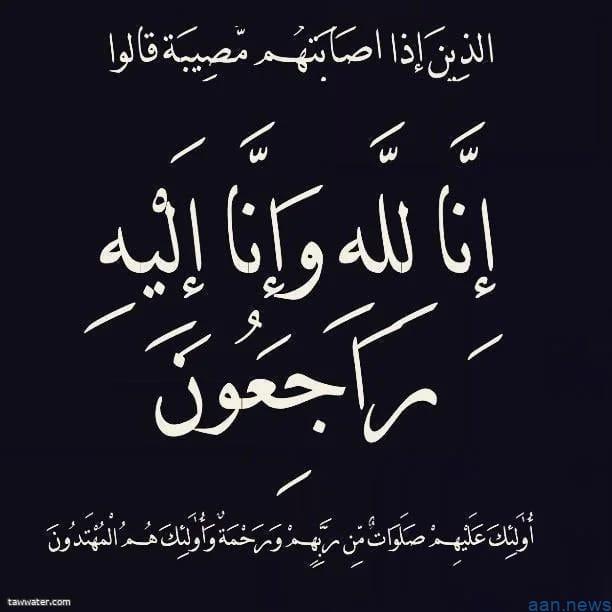 الذِينَ إذا اصَابَتهُم مّصِيبَة قالوا
إِنَّا لِلَّهِ وَإِنَّا إِلَيْهِ
رَاجَعُونَ
أُوَلَٰئِكَ عَلَيْهِمْ صَلَوَاتٌ مِّن رَبِّهِمْ وَرَحْمَةٌ وَأُوَلَٰئِكَ هُمُ الْمُهْتَدُونَ
tawwater.com
aan.news